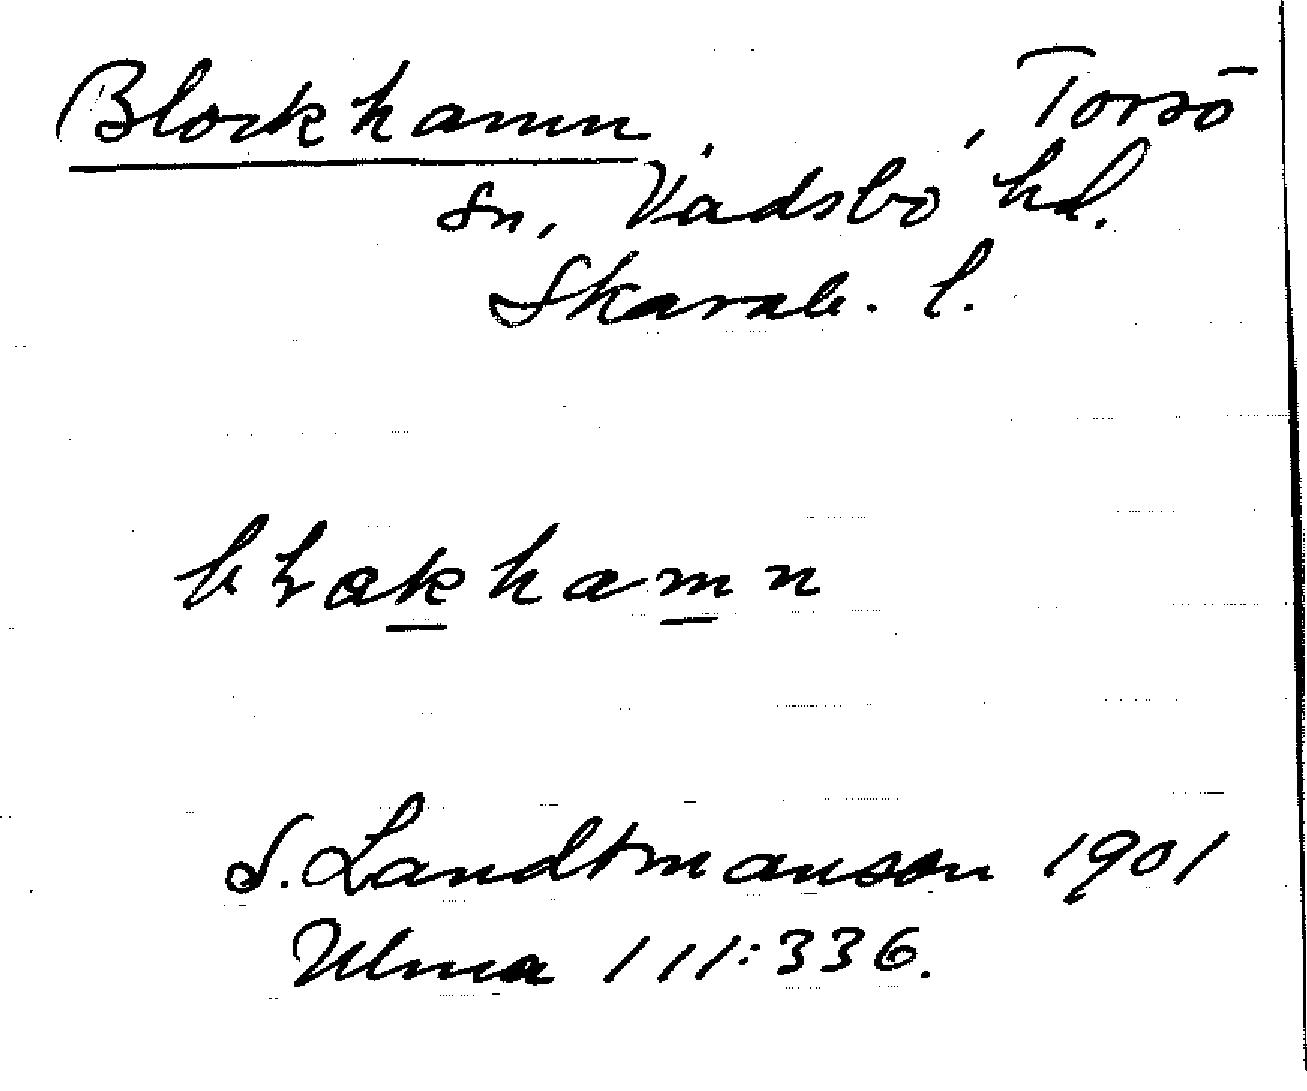 Blockhamn, Torsö
sn, Vadsbo hd.
Skarab. l.
bɫakhamn
S. Landtmanson 1901
Ulma 111:336.